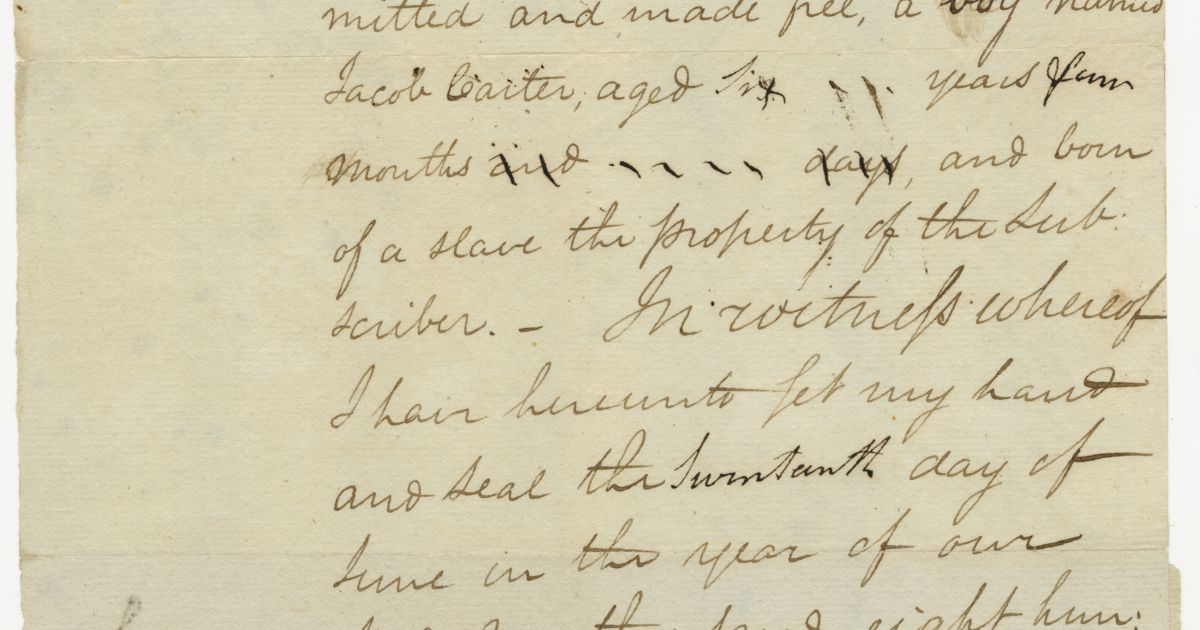 mitted and made free, a boy named
Jacob Carter, aged Six years four
months and days, and born
of a slave the property of the Sub:
scriber. — In witness whereof
I have hereunto set my hand
and Seal the Seventeenth day of
June in the year of our
thousand eight hun: